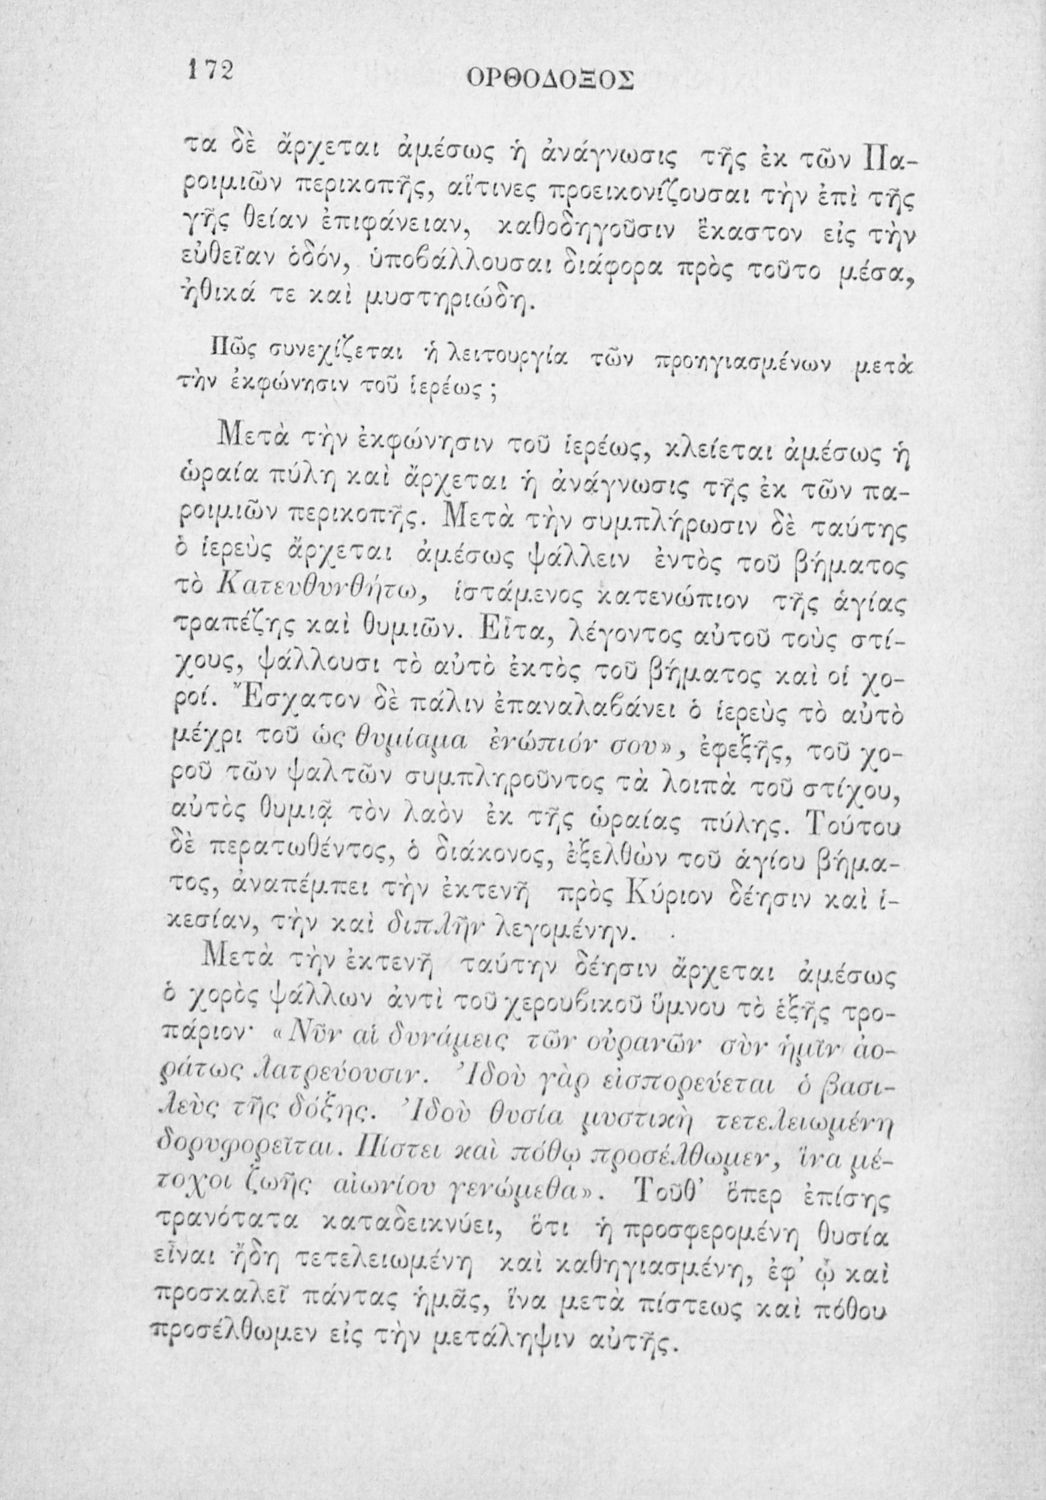 172
ΟΡΘΟΔΟΞΟΣ
τα δὲ ἄρχεται ἀμέσως ἡ ἀνάγνωσις τῆς ἐκ τῶν Πα-
ροιμιῶν περικοπῆς, αἵτινες προεικονίζουσαι τὴν ἐπὶ τῆς
γῆς θείαν ἐπιφάνειαν, καθοδηγοῦσιν ἕκαστον εἰς τὴν
εὐθεῖαν ὁδόν, ὑποβάλλουσαι διάφορα πρὸς τοῦτο μέσα,
ἠθικά τε καὶ μυστηριώδη.
Πῶς συνεχίζεται ἡ λειτουργία τῶν προηγιασμένων μετὰ
τὴν ἐκφώνησιν τοῦ ἱερέως ;
Μετὰ τὴν ἐκφώνησιν τοῦ ἱερέως, κλείεται ἀμέσως ἡ
ὡραία πύλη καὶ ἄρχεται ἡ ἀνάγνωσις τῆς ἐκ τῶν πα-
ροιμιῶν περικοπῆς. Μετὰ τὴν συμπλήρωσιν δὲ ταύτης
ὁ ἱερεὺς ἄρχεται ἀμέσως ψάλλειν ἐντὸς τοῦ βήματος
τὸ Κατευθυνθήτω, ἱστάμενος κατενώπιον τῆς ἁγίας
τραπέζης καὶ θυμιῶν. Εἶτα, λέγοντος αὐτοῦ τοὺς στί-
χους, ψάλλουσι τὸ αὐτὸ ἐκτὸς τοῦ βήματος καὶ οἱ χο-
ροί. Ἔσχατον δὲ πάλιν ἐπαναλαβάνει ὁ ἱερεὺς τὸ αὐτὸ
μέχρι τοῦ ὡς θυμίαμα ἐνώπιόν σου», ἐφεξῆς, τοῦ χο-
ροῦ τῶν ψαλτῶν συμπληροῦντος τὰ λοιπὰ τοῦ στίχου,
αὐτὸς θυμιᾷ τὸν λαὸν ἐκ τῆς ὡραίας πύλης. Τούτου
δὲ περατωθέντος, ὁ διάκονος, ἐξελθὼν τοῦ ἁγίου βήμα-
τος, ἀναπέμπει τὴν ἐκτενῆ πρὸς Κύριον δέησιν καὶ ἱ-
κεσίαν, τὴν καὶ διπλῆν λεγομένην.
Μετὰ τὴν ἐκτενῆ ταύτην δέησιν ἄρχεται ἀμέσως
ὁ χορὸς ψάλλων ἀντὶ τοῦ χερουβικοῦ ὕμνου τὸ ἑξῆς τρο-
πάριον· «Νῦν αἱ δυνάμεις τῶν οὐρανῶν σὺν ἡμῖν ἀο-
ράτως λατρεύουσιν. Ἰδοὺ γὰρ εἰσπορεύεται ὁ βασι-
λεὺς τῆς δόξης. Ἰδοὺ θυσία μυστικὴ τετελειωμένη
δορυφορεῖται. Πίστει καὶ πόθῳ προσέλθωμεν, ἵνα μέ-
τοχοι ζωῆς αἰωνίου γενώμεθα». Τοῦθ' ὅπερ ἐπίσης
τρανότατα καταδεικνύει, ὅτι ἡ προσφερομένη θυσία
εἶναι ἤδη τετελειωμένη καὶ καθηγιασμένη, ἐφ' ᾧ καὶ
προσκαλεῖ πάντας ἡμᾶς, ἵνα μετὰ πίστεως καὶ πόθου
προσέλθωμεν εἰς τὴν μετάληψιν αὐτῆς.